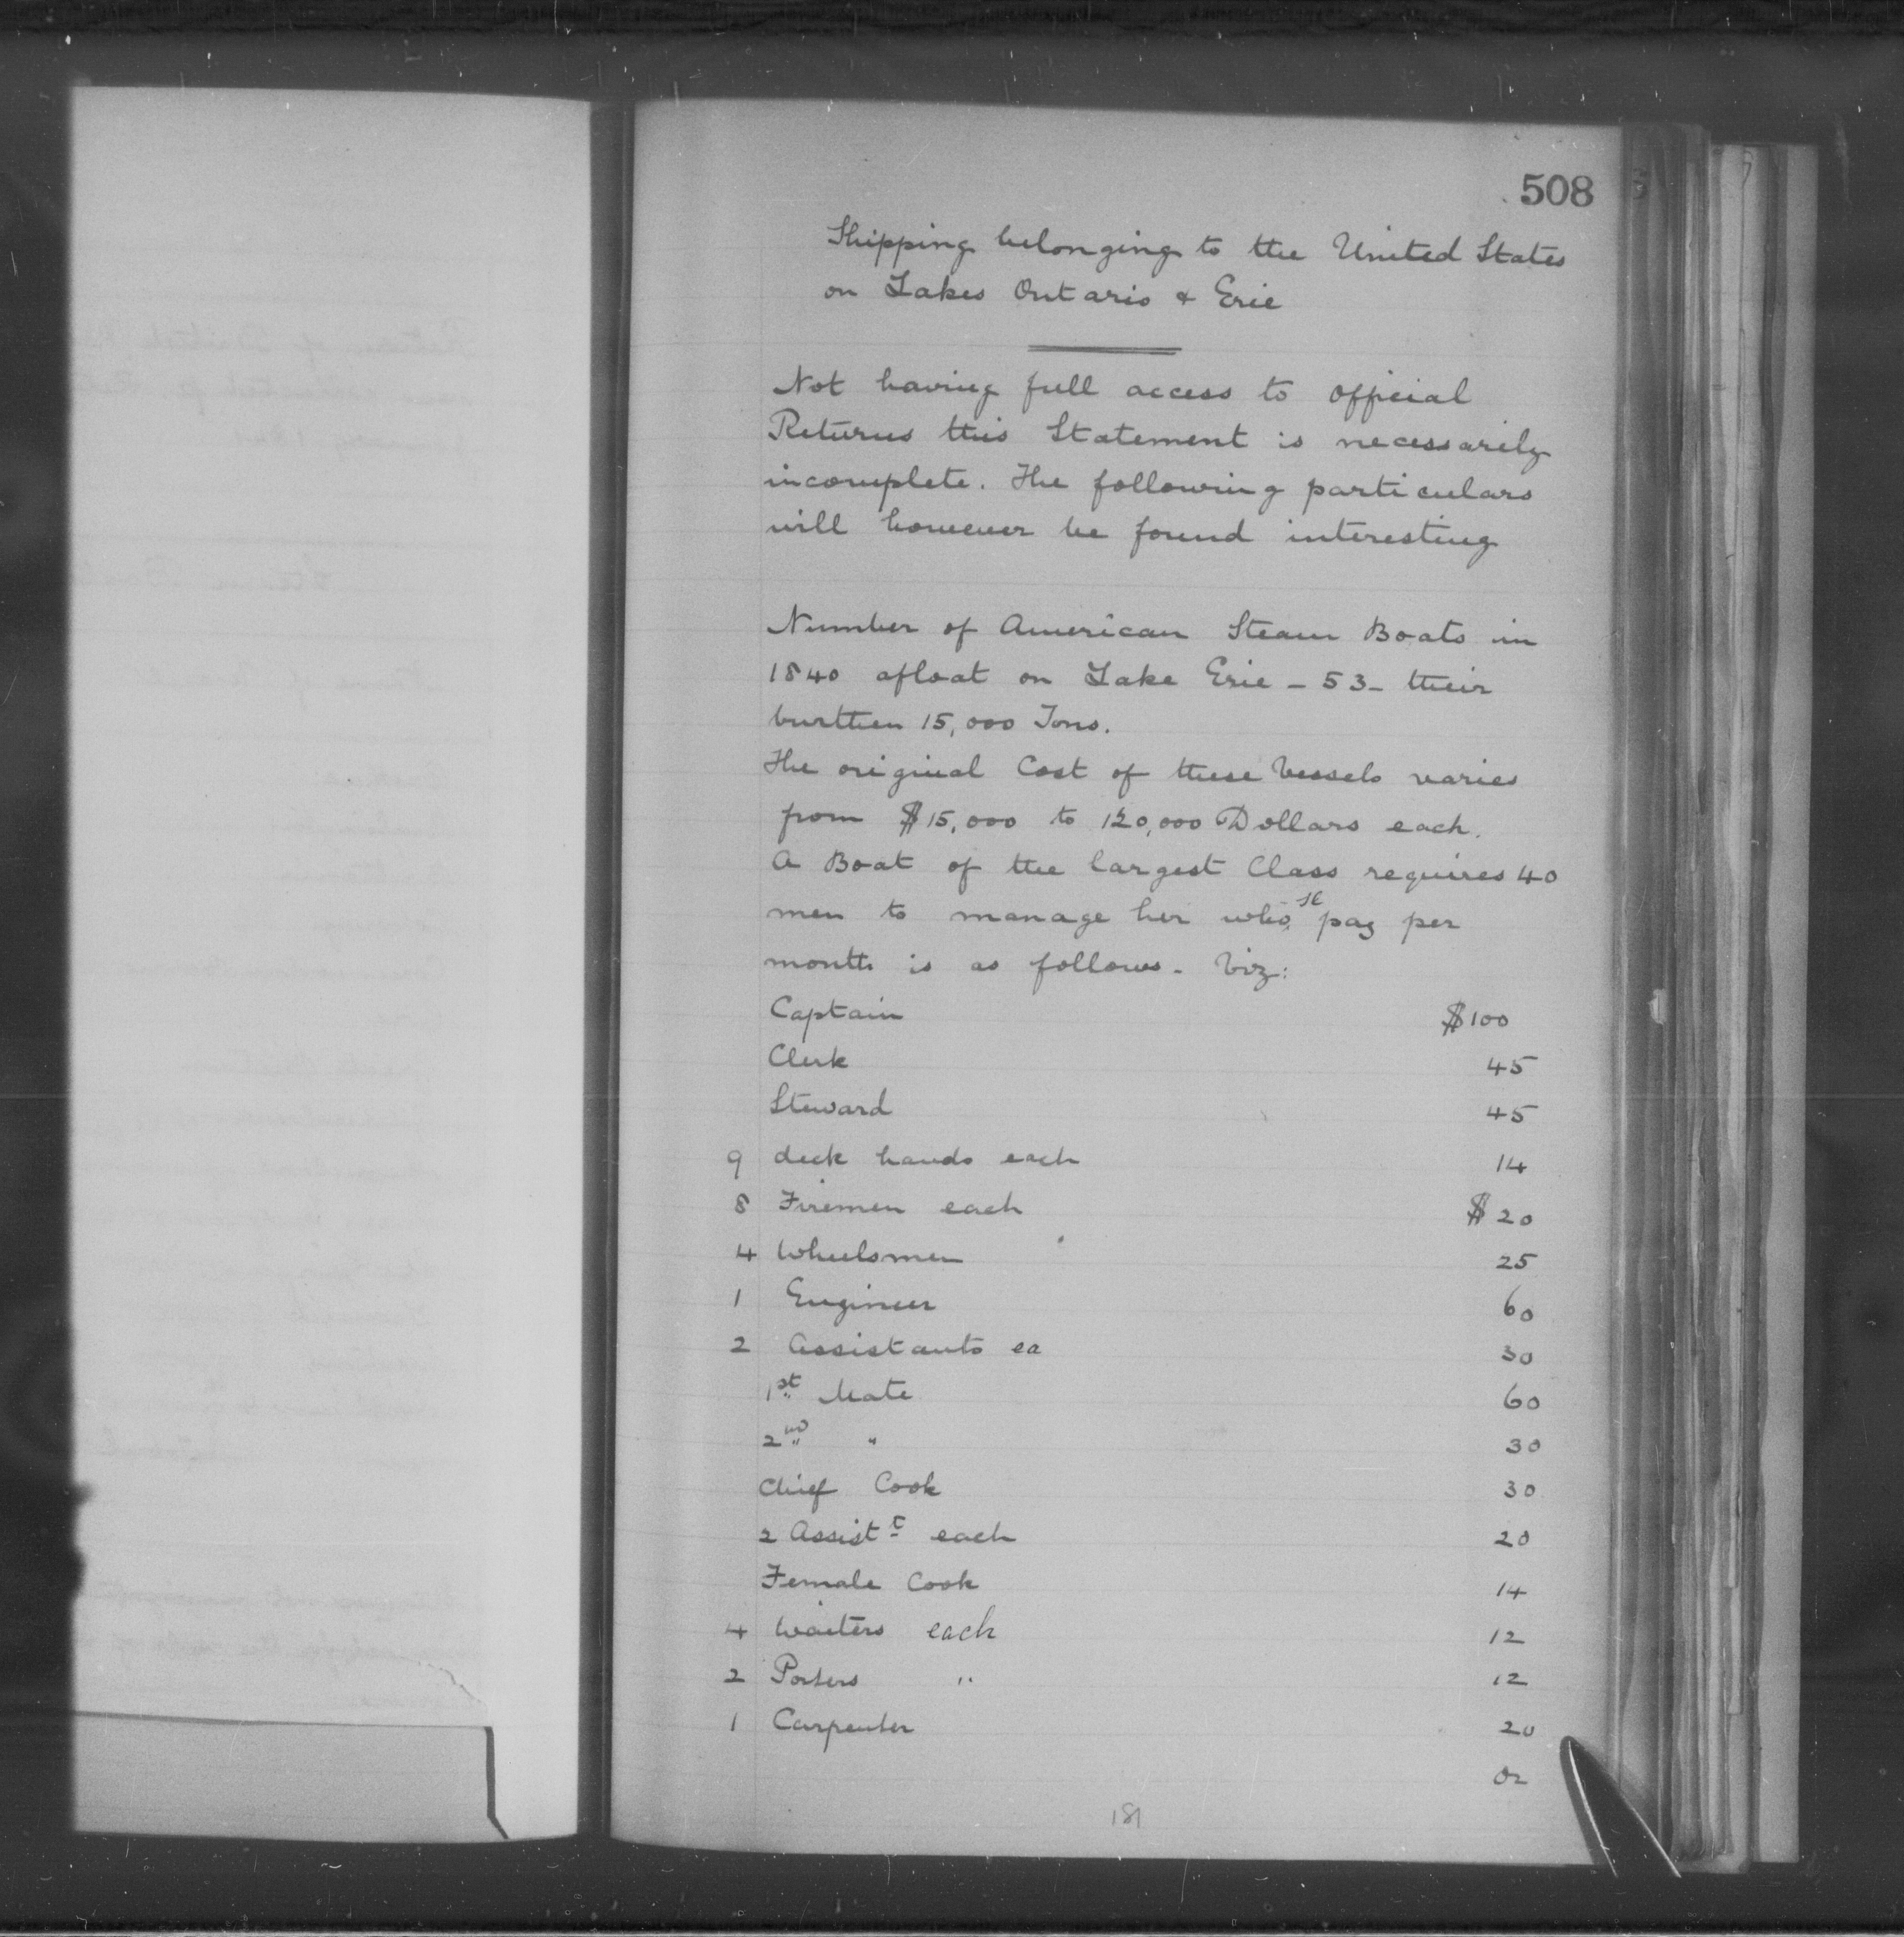 508
Shipping belonging to the United States
on Lakes Ontario & Erie
Not having full access to official
Returns this Statement is necessarily
incomplete. The following particulars
will however be found interesting
Number of American Steam Boats in
1840 afloat on Lake Erie - 53 - their
burthen 15,000 Tons.
The original Cost of these Vessels varies
from $15,000 to 120,000 Dollars each.
A Boat of the largest Class requires 40
men to manage her whose pay per
month is as follows - Viz:
Captain $100
Clerk 45
Steward 45
9 deck hands each 14
8 Firemen each $20
4 Wheelsmen 25
1 Engineer 60
2 Assistants ea 30
1st Mate 60
2nd " 30
Chief Cook 30
2 Assistt each 20
Female Cook 14
4 Waiters each 12
2 Porters " 12
1 Carpenter 20
Or
181